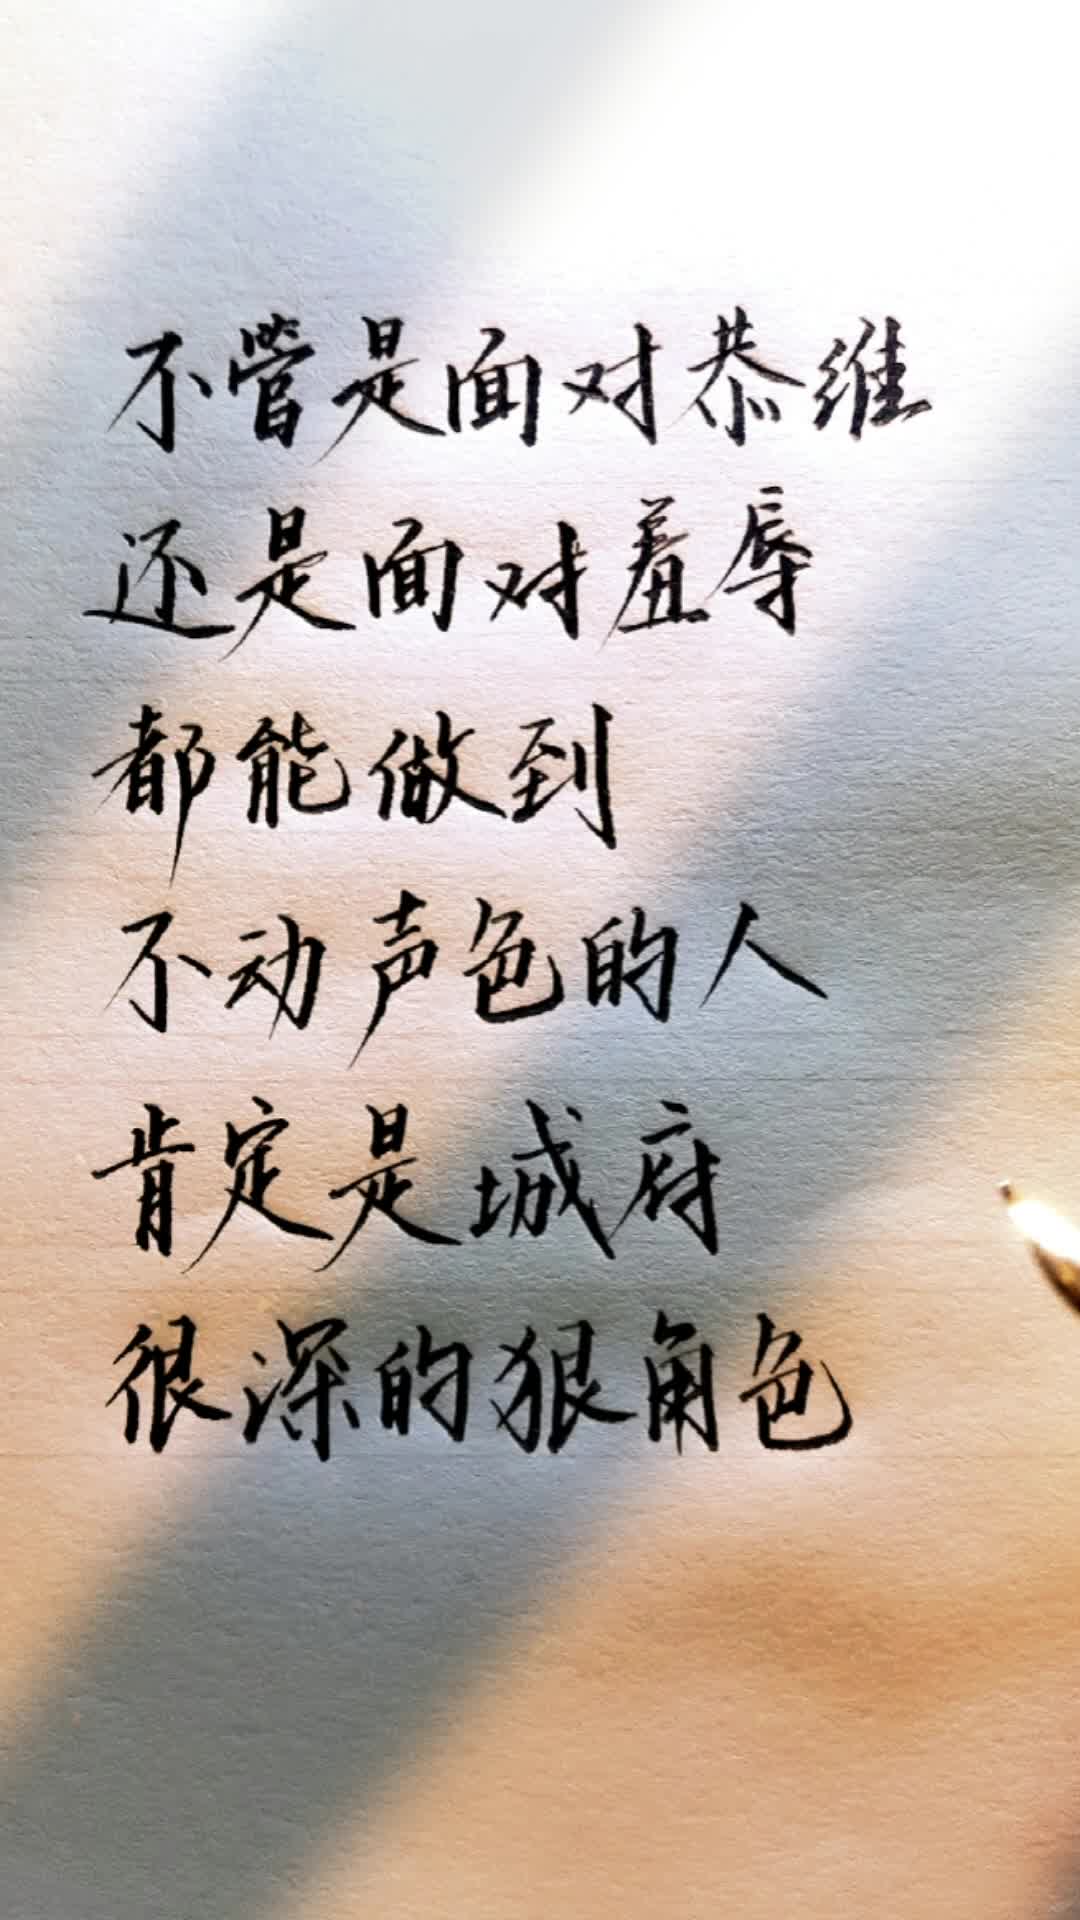 不管是面对恭维
还是面对羞辱
都能做到
不动声色的人
肯定是城府
很深的狠角色